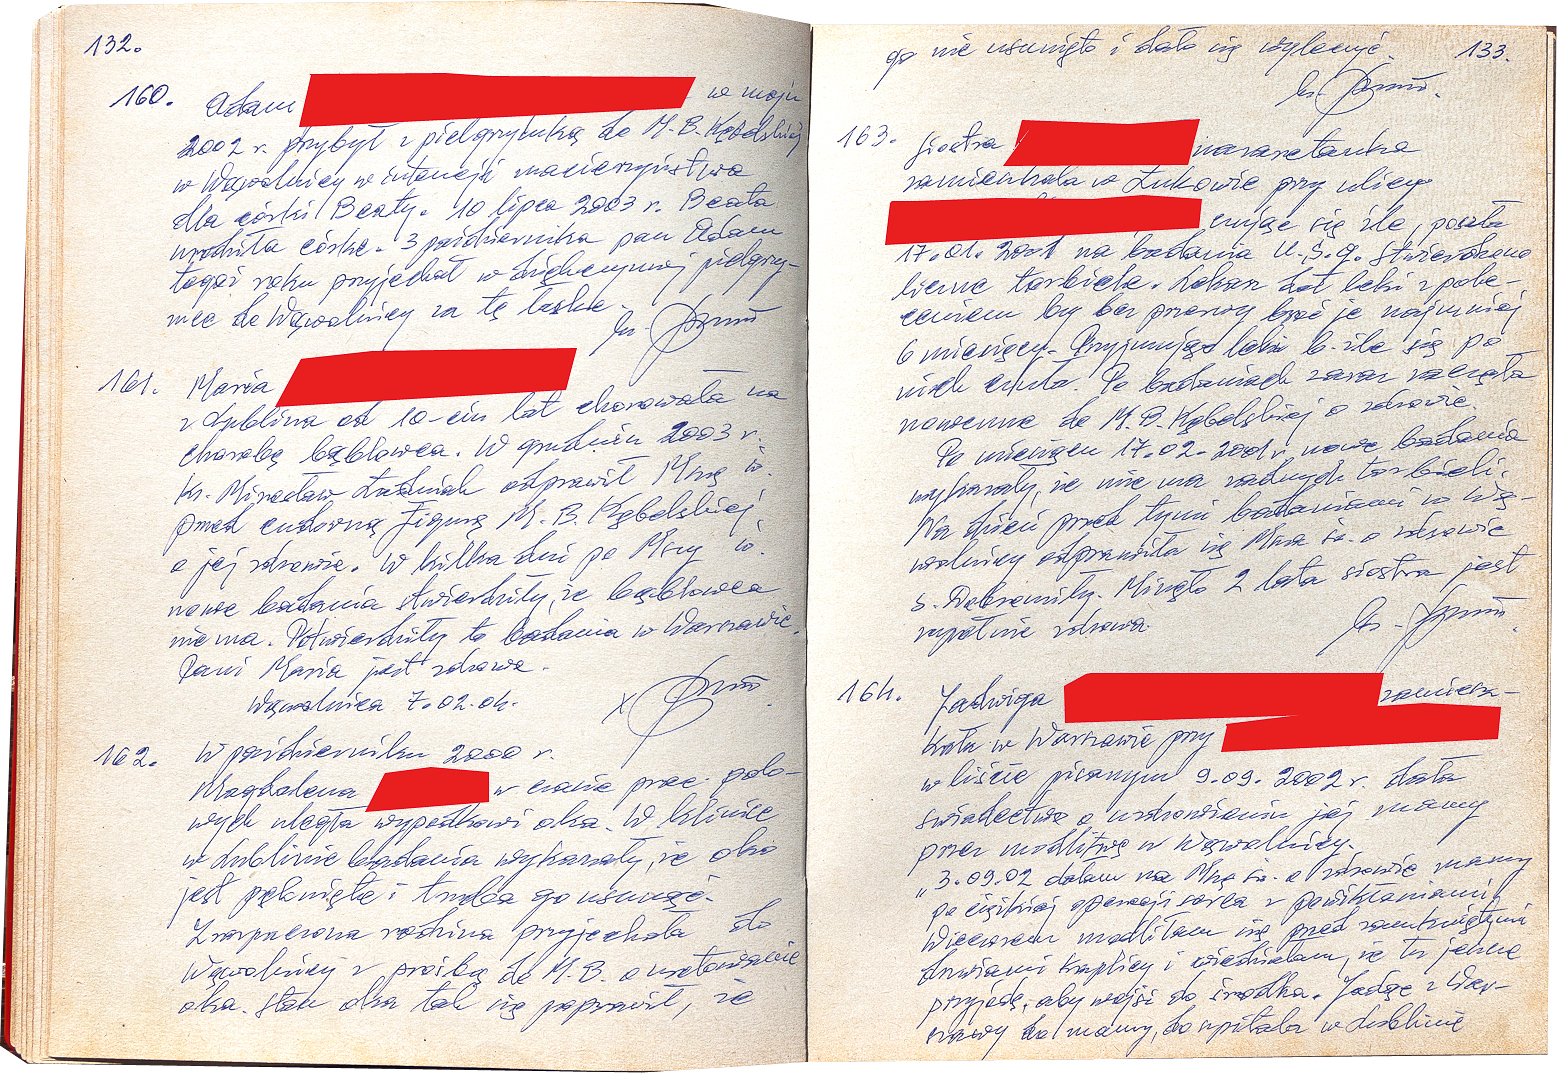 132.
160. Adam w maju
2002 r. przybył z pielgrzymką do M. B. Kębelskiej
w Wąwolnicy w intencji macierzyństwa
dla córki Beaty. 10 lipca 2003 r. Beata
urodziła córkę. 3 października pan Adam
tegoż roku przyjechał w dziękczynnej pielgrzy-
mce do Wąwolnicy za tę łaskę.
ks.
161. Maria
z Lublina od 10-ciu lat chorowała na
chorobę bąblowca. W grudniu 2003 r.
ks. Mirosław Ładniak odprawił Mszę św.
przed cudowną figurą M. B. Kębelskiej
o jej zdrowie. W kilka dni po Mszy św.
nowe badania stwierdziły, że bąblowca
nie ma. Potwierdziły to badania w Warszawie.
Pani Maria jest zdrowa.
Wąwolnica 7.02.04.
162. W październiku 2000 r.
Magdalena w czasie prac polo-
wych uległa wypadkowi oka. W klinice
w Lublinie badania wykazały, że oko
jest pęknięte i trzeba go usunąć.
Zrozpaczona rodzina przyjechała do
Wąwolnicy z prośbą do M. B. o uratowanie
oka. Stan oka tak się poprawił, że
133.
go nie usunięto i dało się wyleczyć.
ks.
163. Siostra nazaretanka
zamieszkała w Łukowie przy ulicy
czując się źle, poszła
17.01.2001 na badania U.S.G. Stwierdzono
liczne torbiele. Lekarz dał leki z pole-
ceniem by bez przerwy brać je najmniej
6 miesięcy. Przyjmując leki b. źle się po
nich czuła. Po badaniach zaraz zaczęła
nowennę do M. B. Kębelskiej o zdrowie.
Po miesiącu 17.02.2001 r. nowe badania
wykazały, że nie ma żadnych torbieli.
Na dzień przed tymi badaniami w Wą-
wolnicy odprawiła się Msza św. o zdrowie
s. Dobromiły. Minęło 2 lata siostra jest
zupełnie zdrowa.
ks.
164. Jadwiga zamiesz-
kała w Warszawie przy
w liście pisanym 9.09.2002 r. dała
świadectwo o uzdrowieniu jej mamy
przez modlitwę w Wąwolnicy.
"3.09.02 dałam na Mszę św. o zdrowie mamy
po ciężkiej operacji serca z powikłaniami.
Wieczorem modliłam się przed zamkniętymi
drzwiami kaplicy i wiedziałam, że tu jeszcze
przyjdę, aby wejść do środka. Jadąc z War-
szawy do mamy, do szpitala w Lublinie